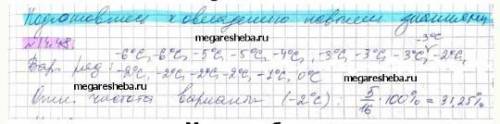 Подготовимся к овладению новыми знаниями
-3°C
№14.48.
-6°C, -6°C, -5°C, -5°C, -4°C, -3°C -3°C, -3°C, -2°C,
megaresheba.ru
Вар. ряд: -2°C, -2°C -2°C, -2°C, -1°C, 0°C
megaresheba.ru
megaresheba.ru
Отн. частота варианты (-2°C): 5/16 · 100% = 31,25%
megaresheba.ru